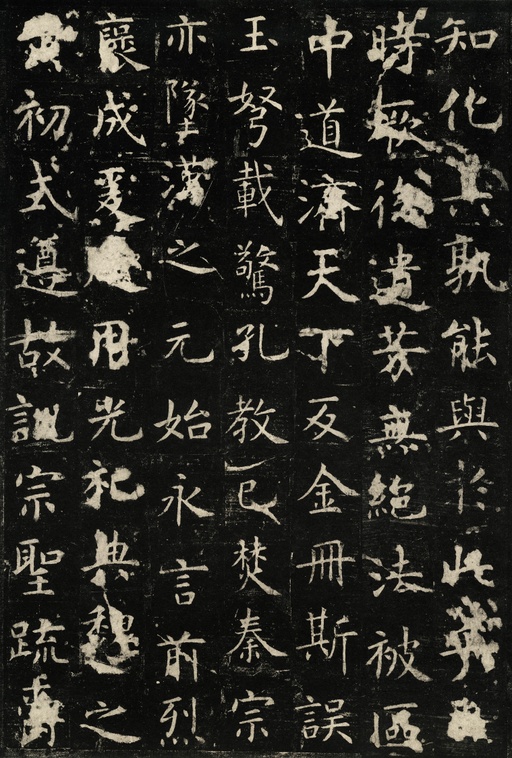 知化其孰能與於此乎自
時厥後遺芳無絕法被區
中道濟天下及金冊斯誤
玉弩載驚孔教已焚秦宗
亦墜漢之元始永言前烈
褒成爰建用光祀典魏之
黃初式遵故訓宗聖疏爵